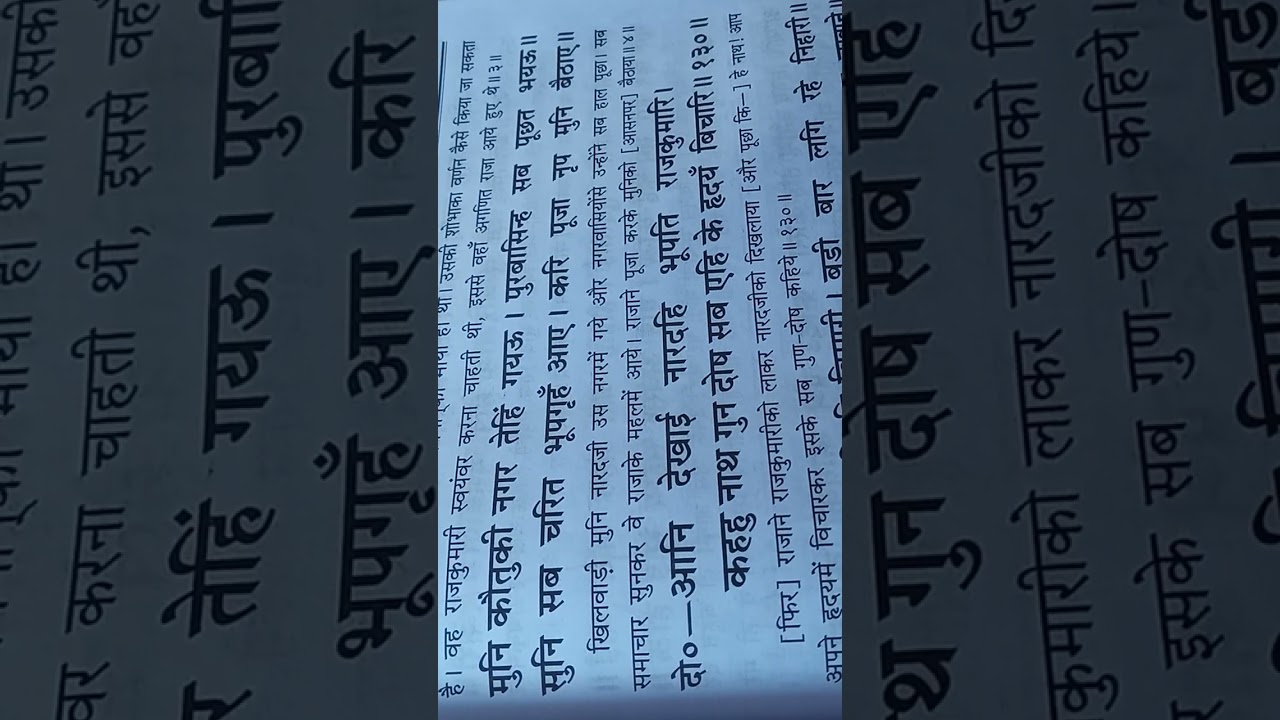 है। वह राजकुमारी स्वयंवर करना चाहती थी, इससे वहाँ अगणित राजा आये हुए थे॥३॥
मुनि कौतुकी नगर तेहिं गयऊ। पुरबासिन्ह सब पूछत भयऊ॥
सुनि सब चरित भूपगृहँ आए। करि पूजा नृप मुनि बैठाए॥
खिलवाड़ी मुनि नारदजी उस नगरमें गये और नगरवासियोंसे उन्होंने सब हाल पूछा। सब
समाचार सुनकर वे राजाके महलमें आये। राजाने पूजा करके मुनिको [आसनपर] बैठाया॥४॥
दो०—आनि देखाई नारदहि भूपति राजकुमारि।
कहहु नाथ गुन दोष सब एहि के हृदयँ बिचारि॥१३०॥
[फिर] राजाने राजकुमारीको लाकर नारदजीको दिखलाया [और पूछा कि—] हे नाथ! आप
अपने हृदयमें विचारकर इसके सब गुण-दोष कहिये॥१३०॥
बड़ी बार लगि रहे निहारी॥